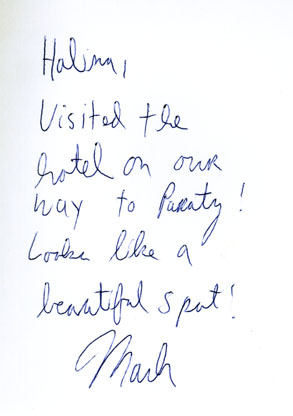 Halina,
Visited the
hotel on our
way to Paraty!
Looks like a
beautiful spot!
Mark